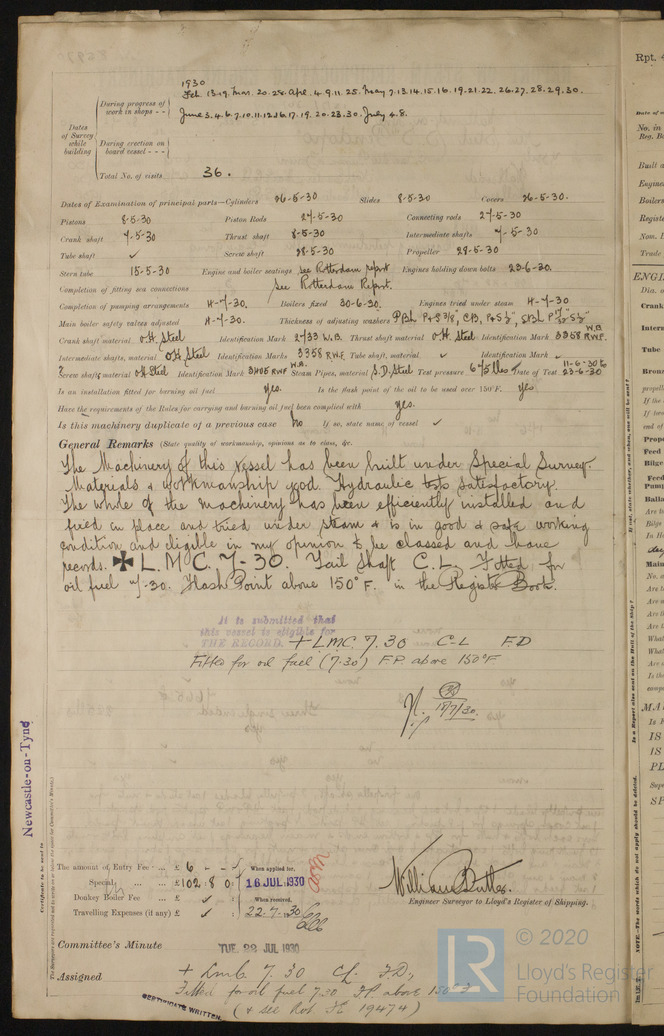 1930
Feb. 13.19. Mar. 20.28. Apl. 4.9.11.25. May 7.13.14.15.16.19.21.22.26.27.28.29.30.
During progress of work in shops - -
June 3.4.6.7.10.11.12.16.17.19.20.23.30. July 4.8.
Dates of Survey while building
During erection on board vessel - - -
Total No. of visits 36.
Dates of Examination of principal parts—Cylinders 26-5-30 Slides 8-5-30 Covers 26-5-30.
Pistons 8-5-30 Piston Rods 27-5-30 Connecting rods 27-5-30
Crank shaft 7-5-30 Thrust shaft 8-5-30 Intermediate shafts 7-5-30
Tube shaft ✓ Screw shaft 28-5-30 Propeller 28-5-30
Stern tube 15-5-30 Engine and boiler seatings See Rotterdam report Engines holding down bolts 23-6-30.
Completion of fitting sea connections See Rotterdam Report.
Completion of pumping arrangements 4-7-30. Boilers fixed 30-6-30. Engines tried under steam 4-7-30
Main boiler safety valves adjusted 4-7-30. Thickness of adjusting washers
Crank shaft material O.H. Steel Identification Mark 2733 W.B. Thrust shaft material O.H. Steel Identification Mark 3358 R.W.F. W.B.
Intermediate shafts, material O.H. Steel Identification Marks 3358 R.W.F. Tube shaft, material ✓ Identification Mark ✓
Screw shaft, material O.H. Steel Identification Mark 3405 RWF W.B. Steam Pipes, material S.D. Steel Test pressure 675 lbs Date of Test 11-6-30 to 23-6-30
Is an installation fitted for burning oil fuel yes. Is the flash point of the oil to be used over 150°F. yes.
Have the requirements of the Rules for carrying and burning oil fuel been complied with yes.
Is this machinery duplicate of a previous case No If so, state name of vessel ✓
General Remarks (State quality of workmanship, opinions as to class, &c.
The Machinery of this vessel has been built under Special Survey.
Materials & workmanship good. Hydraulic tests satisfactory.
The whole of the machinery has been efficiently installed and
fixed in place and tried under steam & is in good & safe working
condition and eligible in my opinion to be classed and have
records. ✠ L.M.C. 7-30. Tail Shaft C.L. Fitted for
oil fuel 7-30. Flash Point above 150°F. in the Register Book.
It is submitted that
this vessel is eligible for
THE RECORD. + LMC 7.30 C-L F.D
Fitted for oil fuel (7.30) F.P. above 150°F.
17/7/30.
Newcastle-on-Tyne
Certificate to be sent to
The amount of Entry Fee - ... £ 6 - - When applied for,
Special ... ... £ 102.8.0 16 JUL 1930
Donkey Boiler Fee ... £ ✓ When received,
Travelling Expenses (if any) £ ✓ 22.7.30
William Butler.
Engineer Surveyor to Lloyd's Register of Shipping.
Committee's Minute TUE. 22 JUL 1930
Assigned + LMC 7.30 CL. F.D,
Fitted for oil fuel 7.30 F.P. above 150°F
CERTIFICATE WRITTEN. (& see Rot. F.E. 19474)
© 2020
LR
Lloyd's Register
Foundation
Rpt. 4